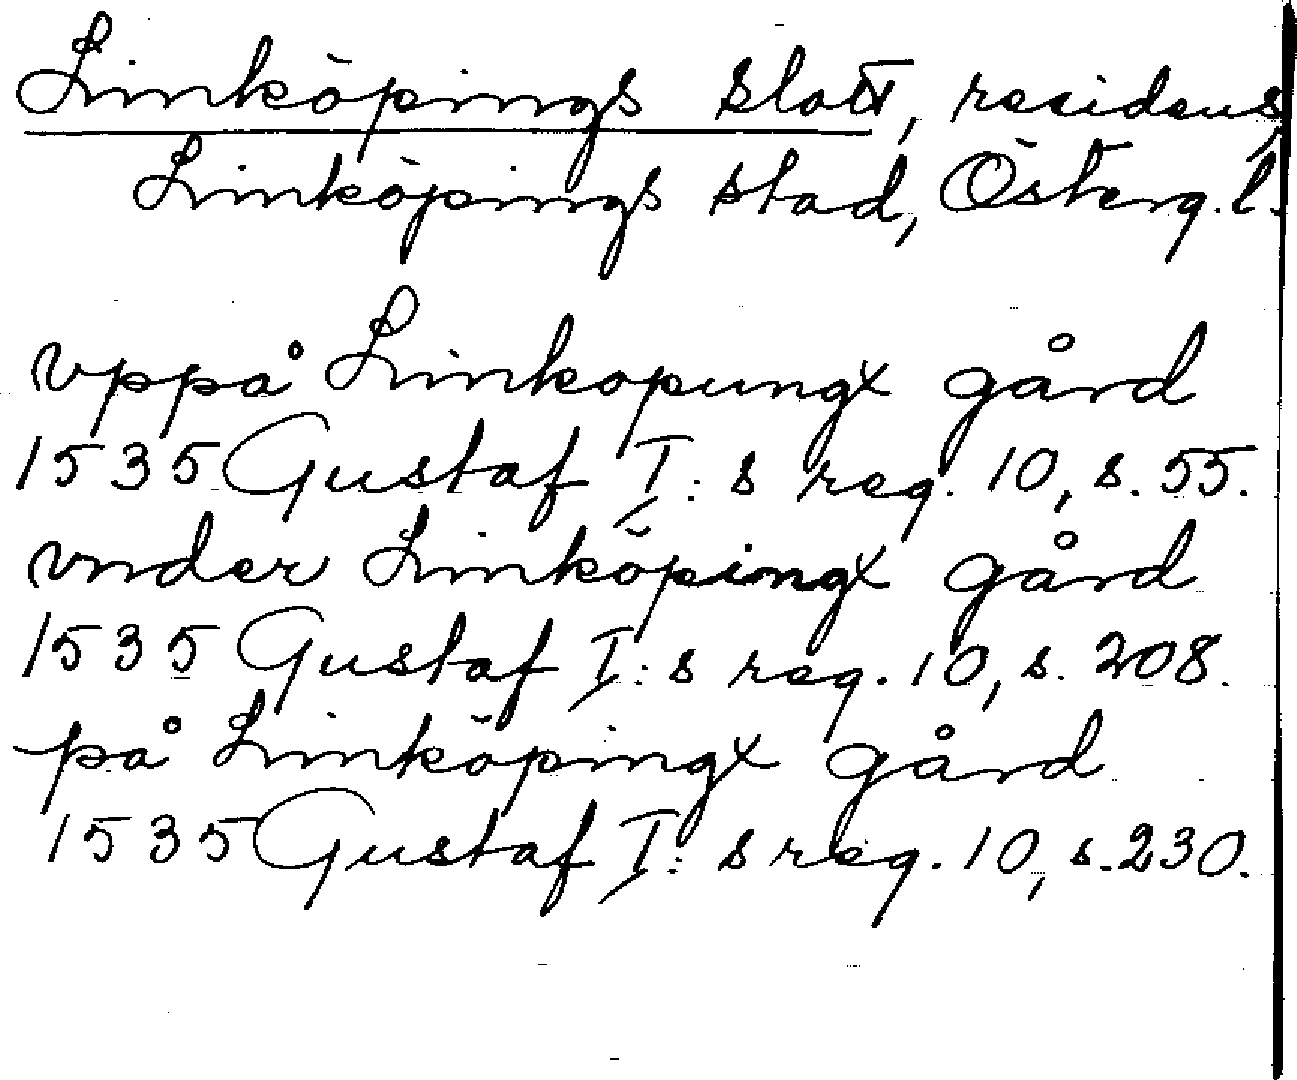 Linköpings slott, residens,
Linköpings stad, Österg. l.
vppå Linkopungx gård
1535 Gustaf I:s reg. 10, s. 55.
vnder Linköpingx gård
1535 Gustaf I:s reg. 10, s. 208.
på Linköpingx gård
1535 Gustaf I:s reg. 10, s. 230.